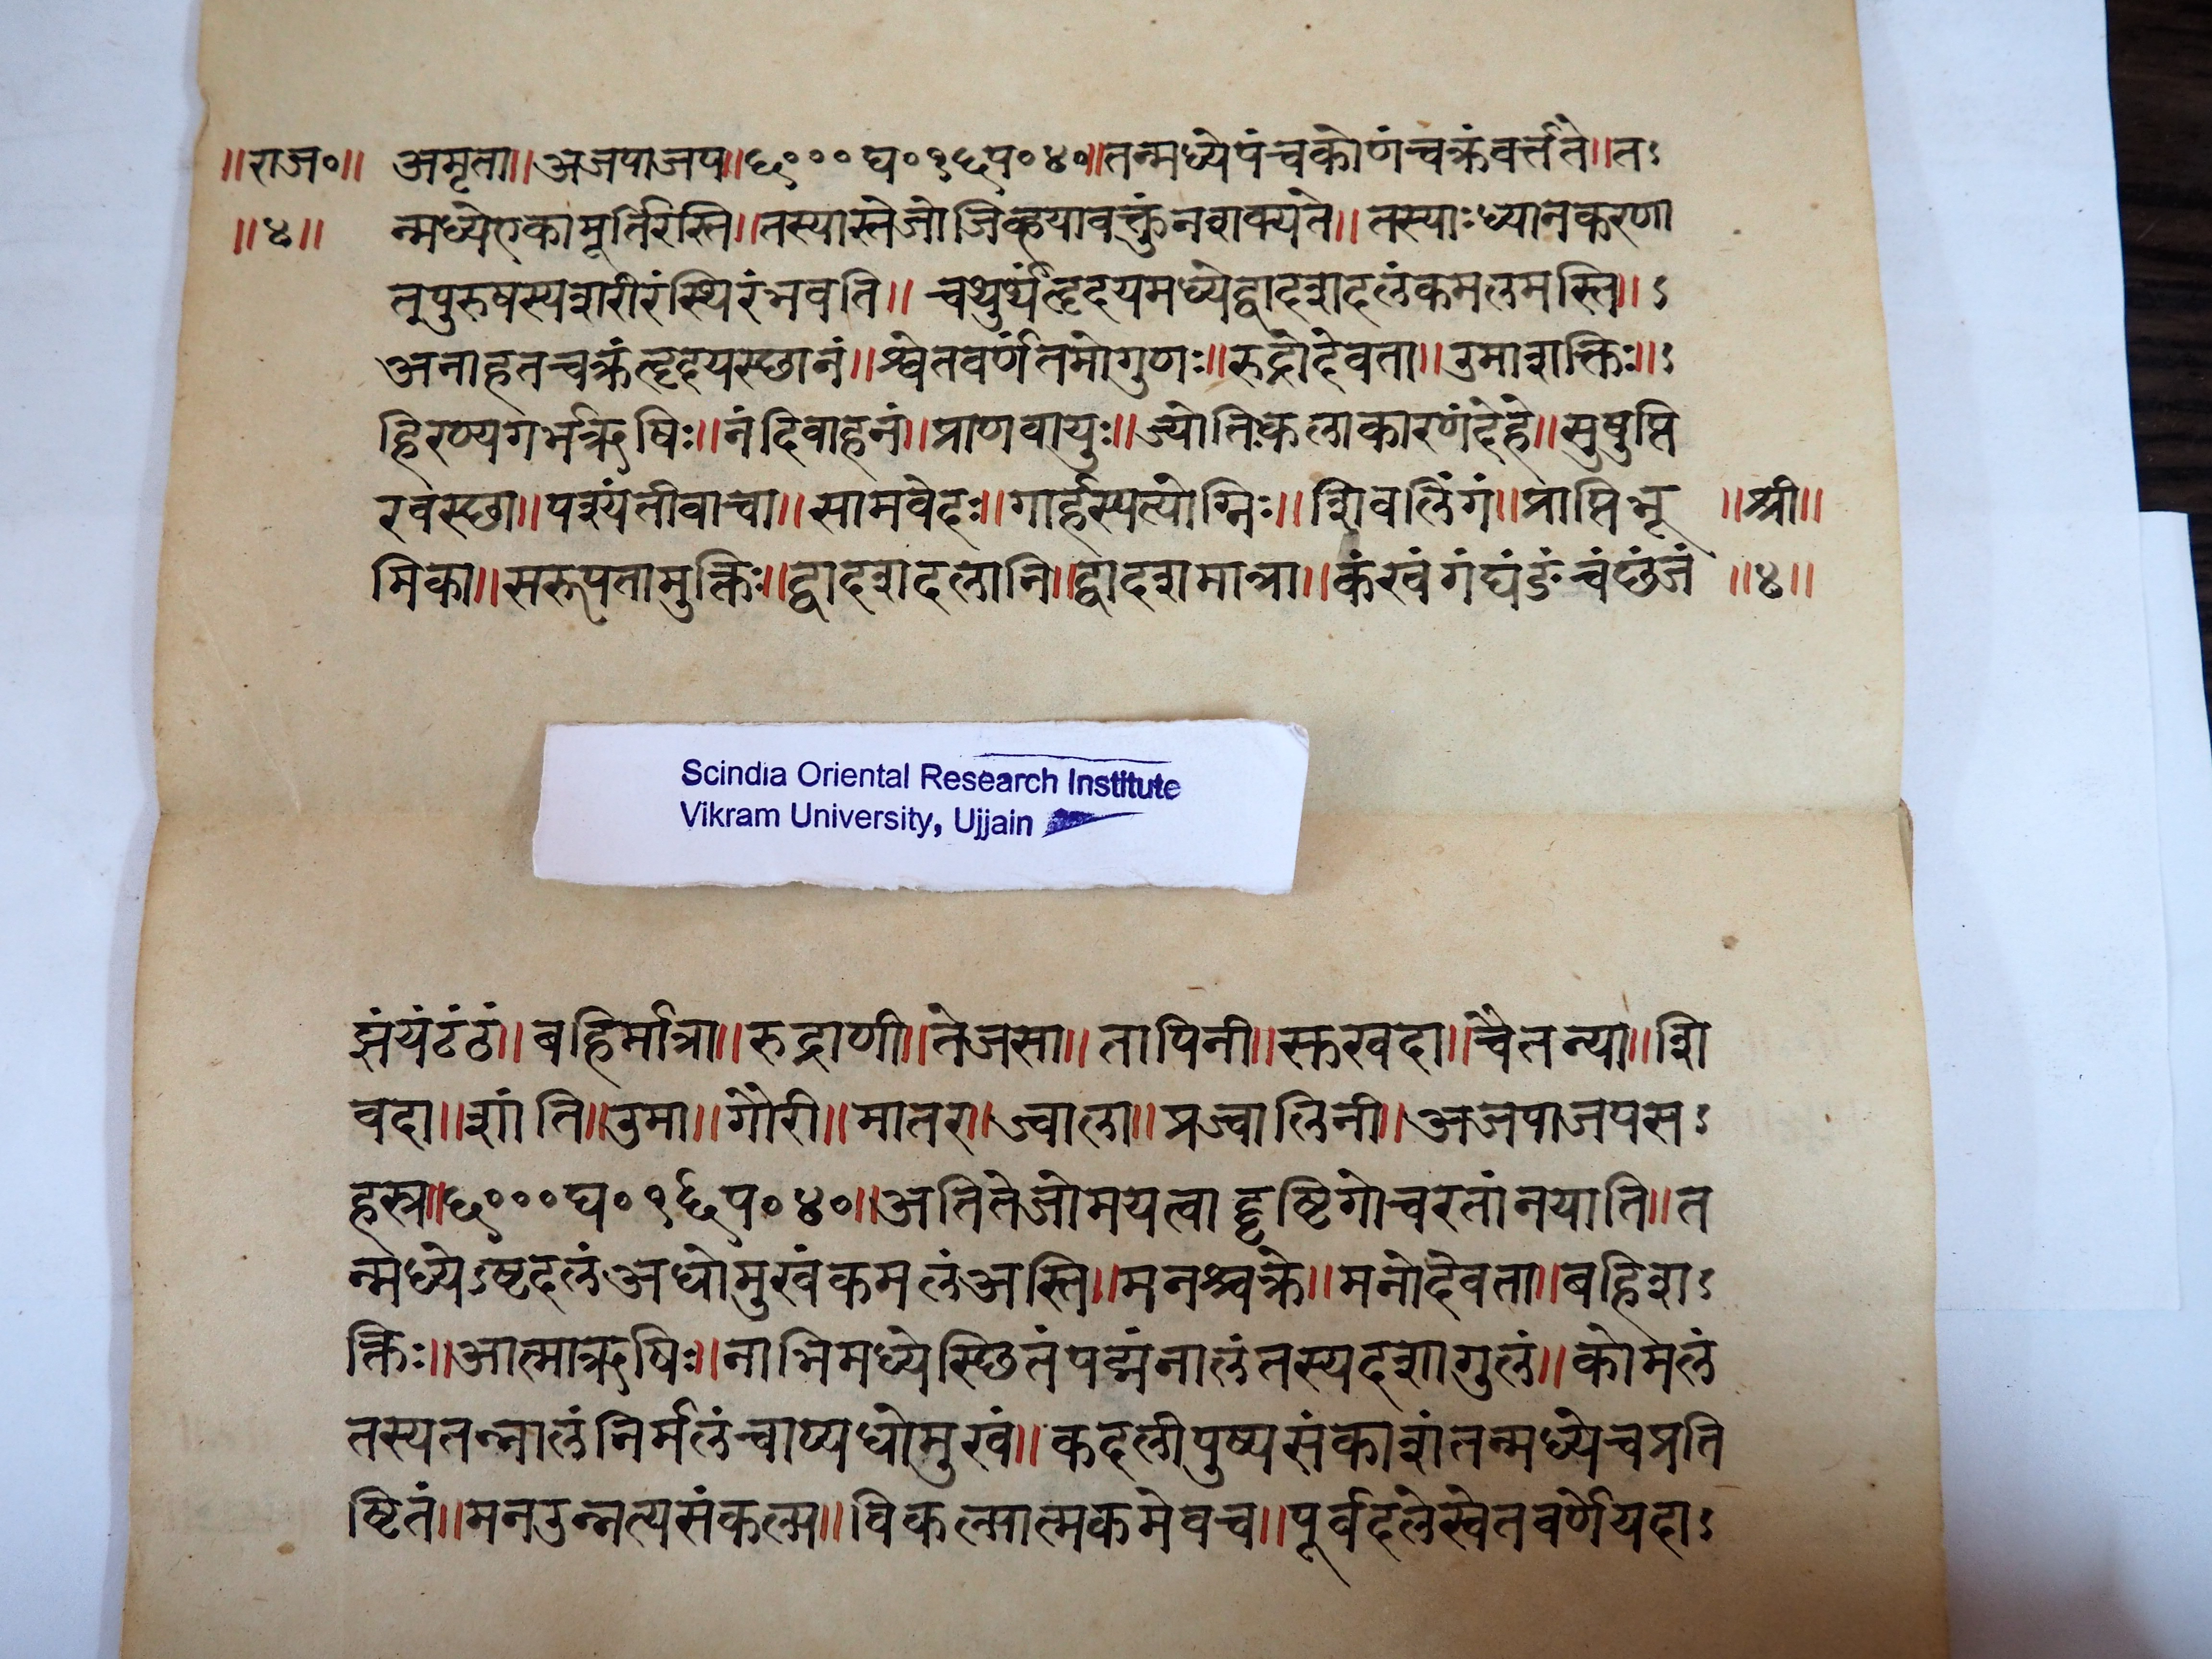 ॥राज०॥ अमृता॥अजपाजप॥६००० घ०१६प०४०॥तन्मध्येपंचकोणंचक्रंवर्त्तते॥तऽ
॥४॥ न्मध्येएकामूर्तिरस्ति॥तस्यास्तेजोजिव्हयावक्तुंनशक्यते॥तस्याःध्यानकरणा
त्पुरुषस्यशरीरंस्थिरंभवति॥ चथुर्थंहृदयमध्येद्वादशदलंकमलमस्ति॥ऽ
अनाहतचक्रंहृदयस्छानं॥श्वेतवर्णंतमोगुणः॥रुद्रोदेवता॥उमाशक्तिः॥ऽ
हिरण्यगर्भऋषिः॥नंदिवाहनं॥प्राणवायुः॥ज्योतिःकलाकारणंदेहे॥सुषुप्ति
रवस्छा॥पश्यंतीवाचा॥सामवेदः॥गार्हस्पत्योग्निः॥शिवलिंगं॥प्राप्तिभू ॥श्री॥
मिका॥सरूपतामुक्तिः॥द्वादशदलानि॥द्वादशमात्रा॥कंखंगंघंङंचंछंजं ॥४॥
Scindia Oriental Research Institute
Vikram University, Ujjain
झंयंटंठं॥बहिर्मात्रा॥रुद्राणी॥तेजसा॥तापिनी॥स्कखदा॥चैतन्या॥शि
वदा॥शांति॥उमा॥गौरी॥मातरा॥ज्वाला॥प्रज्वालिनी॥अजपाजपसऽ
हस्त्र॥६०००घ०१६प०४०॥अतितेजोमयत्वाद्दृष्टिगोचरतांनयाति॥त
न्मध्येऽष्टदलंअधोमुखंकमलंअस्ति॥मनश्चक्रे॥मनोदेवता॥बहिशऽ
क्तिः॥आत्माऋषिः॥नाभिमध्येस्छितंपद्मंनालंतस्यदशागुलं॥कोमलं
तस्यतन्नालंनिर्मलंचाप्यधोमुखं॥कदलीपुष्पसंकाशंतन्मध्येचप्रति
ष्टितं॥मनउन्नत्यसंकल्प॥विकल्पात्मकमेवच॥पूर्वदलेस्वेतवर्णेयदाऽ